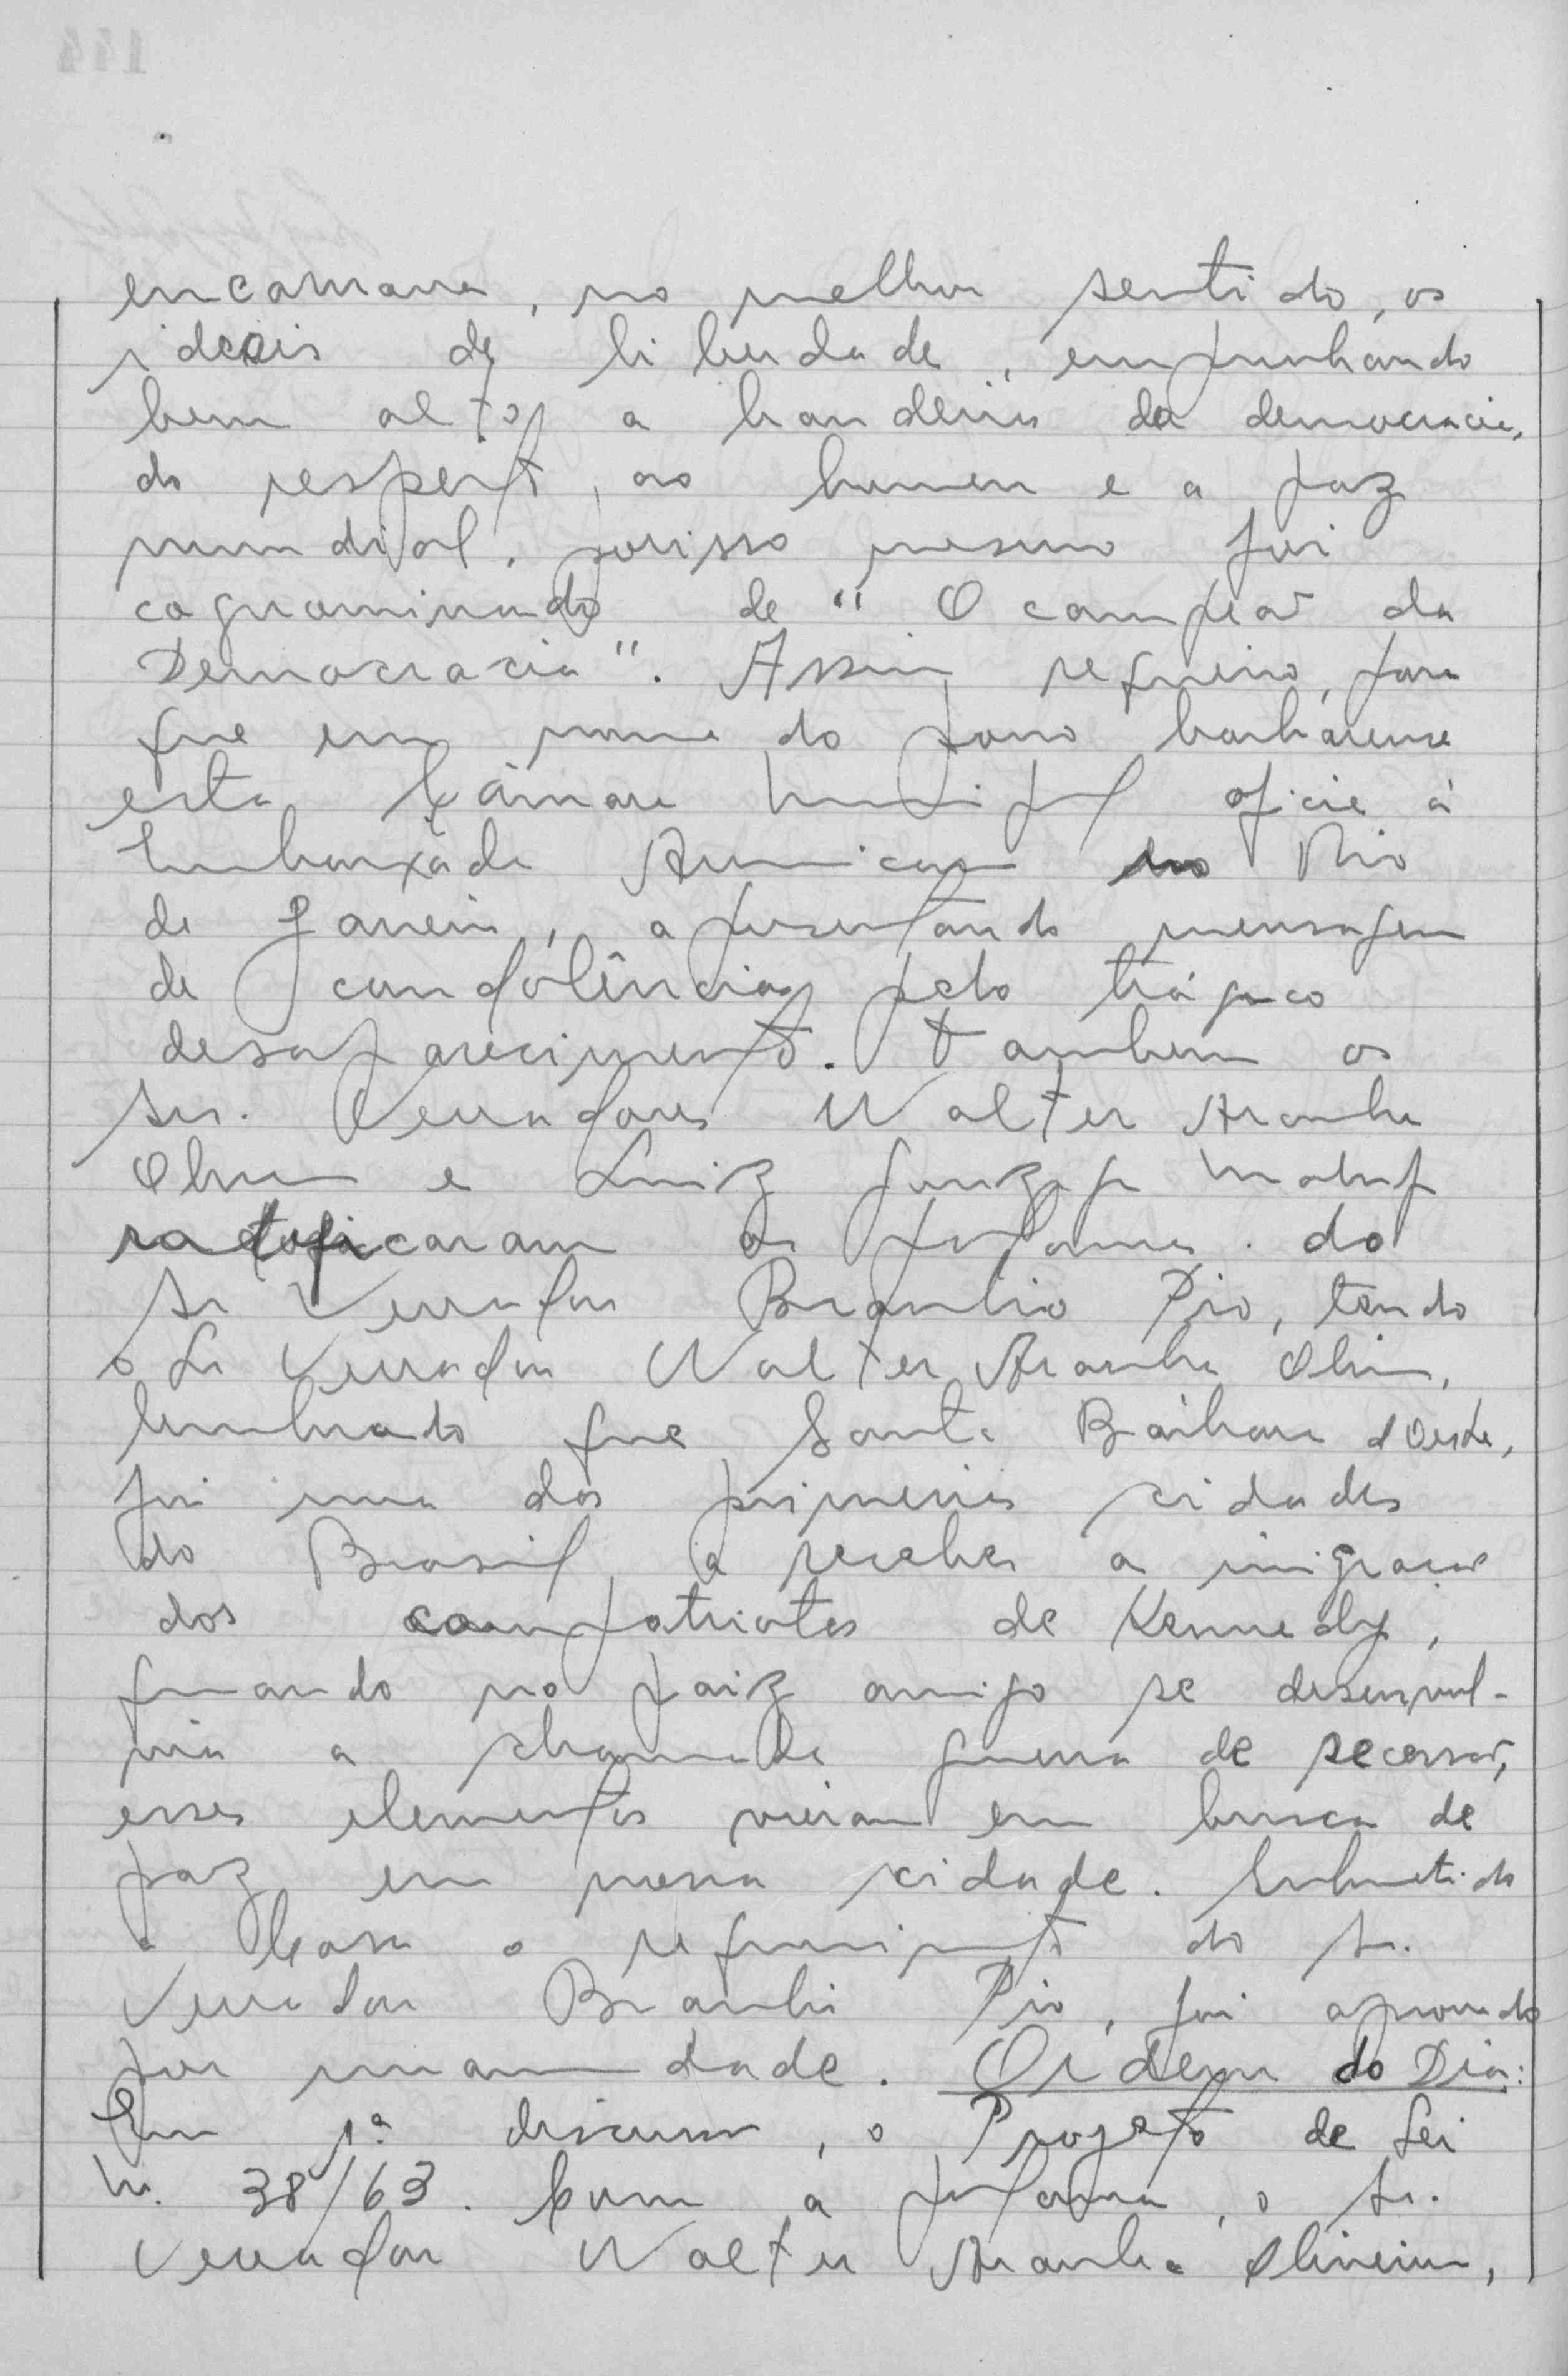 encarnava, no melhor sentido, os
ideais de liberdade, empunhando
bem alto, a bandeira da democracia,
do respeito, ao homem e a paz
mundial, porisso mesmo foi
cognominado de "O campeão da
Democracia". Assim requeiro, para
que em nome do povo barbarense
esta Câmara Municipal oficie á
Embaixada Americana no Rio
de Janeiro, apresentando mensagem
de condolências pelo trágico
desaparecimento. Tambem os
srs. Vereadores Walter Aranha
Oliveira e Luiz Gonzaga Maluf
ratificaram as palavras do
Sr Vereador Braulio Pio, tendo
o Sr Vereador Walter Aranha Oliveira,
lembrado que Santa Bárbara d'Oeste,
foi uma das primeiras cidades
do Brasil a receber a imigração
dos compatriotas de Kennedy,
quando no paiz amigo se desenvol-
via a chamada guerra de secessão,
esses elementos vieram em busca de
paz em nossa cidade. Submetido
a Casa o requerimento do Sr.
Vereador Braulio Pio, foi aprovado
por unanimidade. Ordem do Dia:
Em 1ª discussão, o Projeto de Lei
n. 38/63. Com a palavra, o Sr.
Vereador Walter Aranha Oliveira,